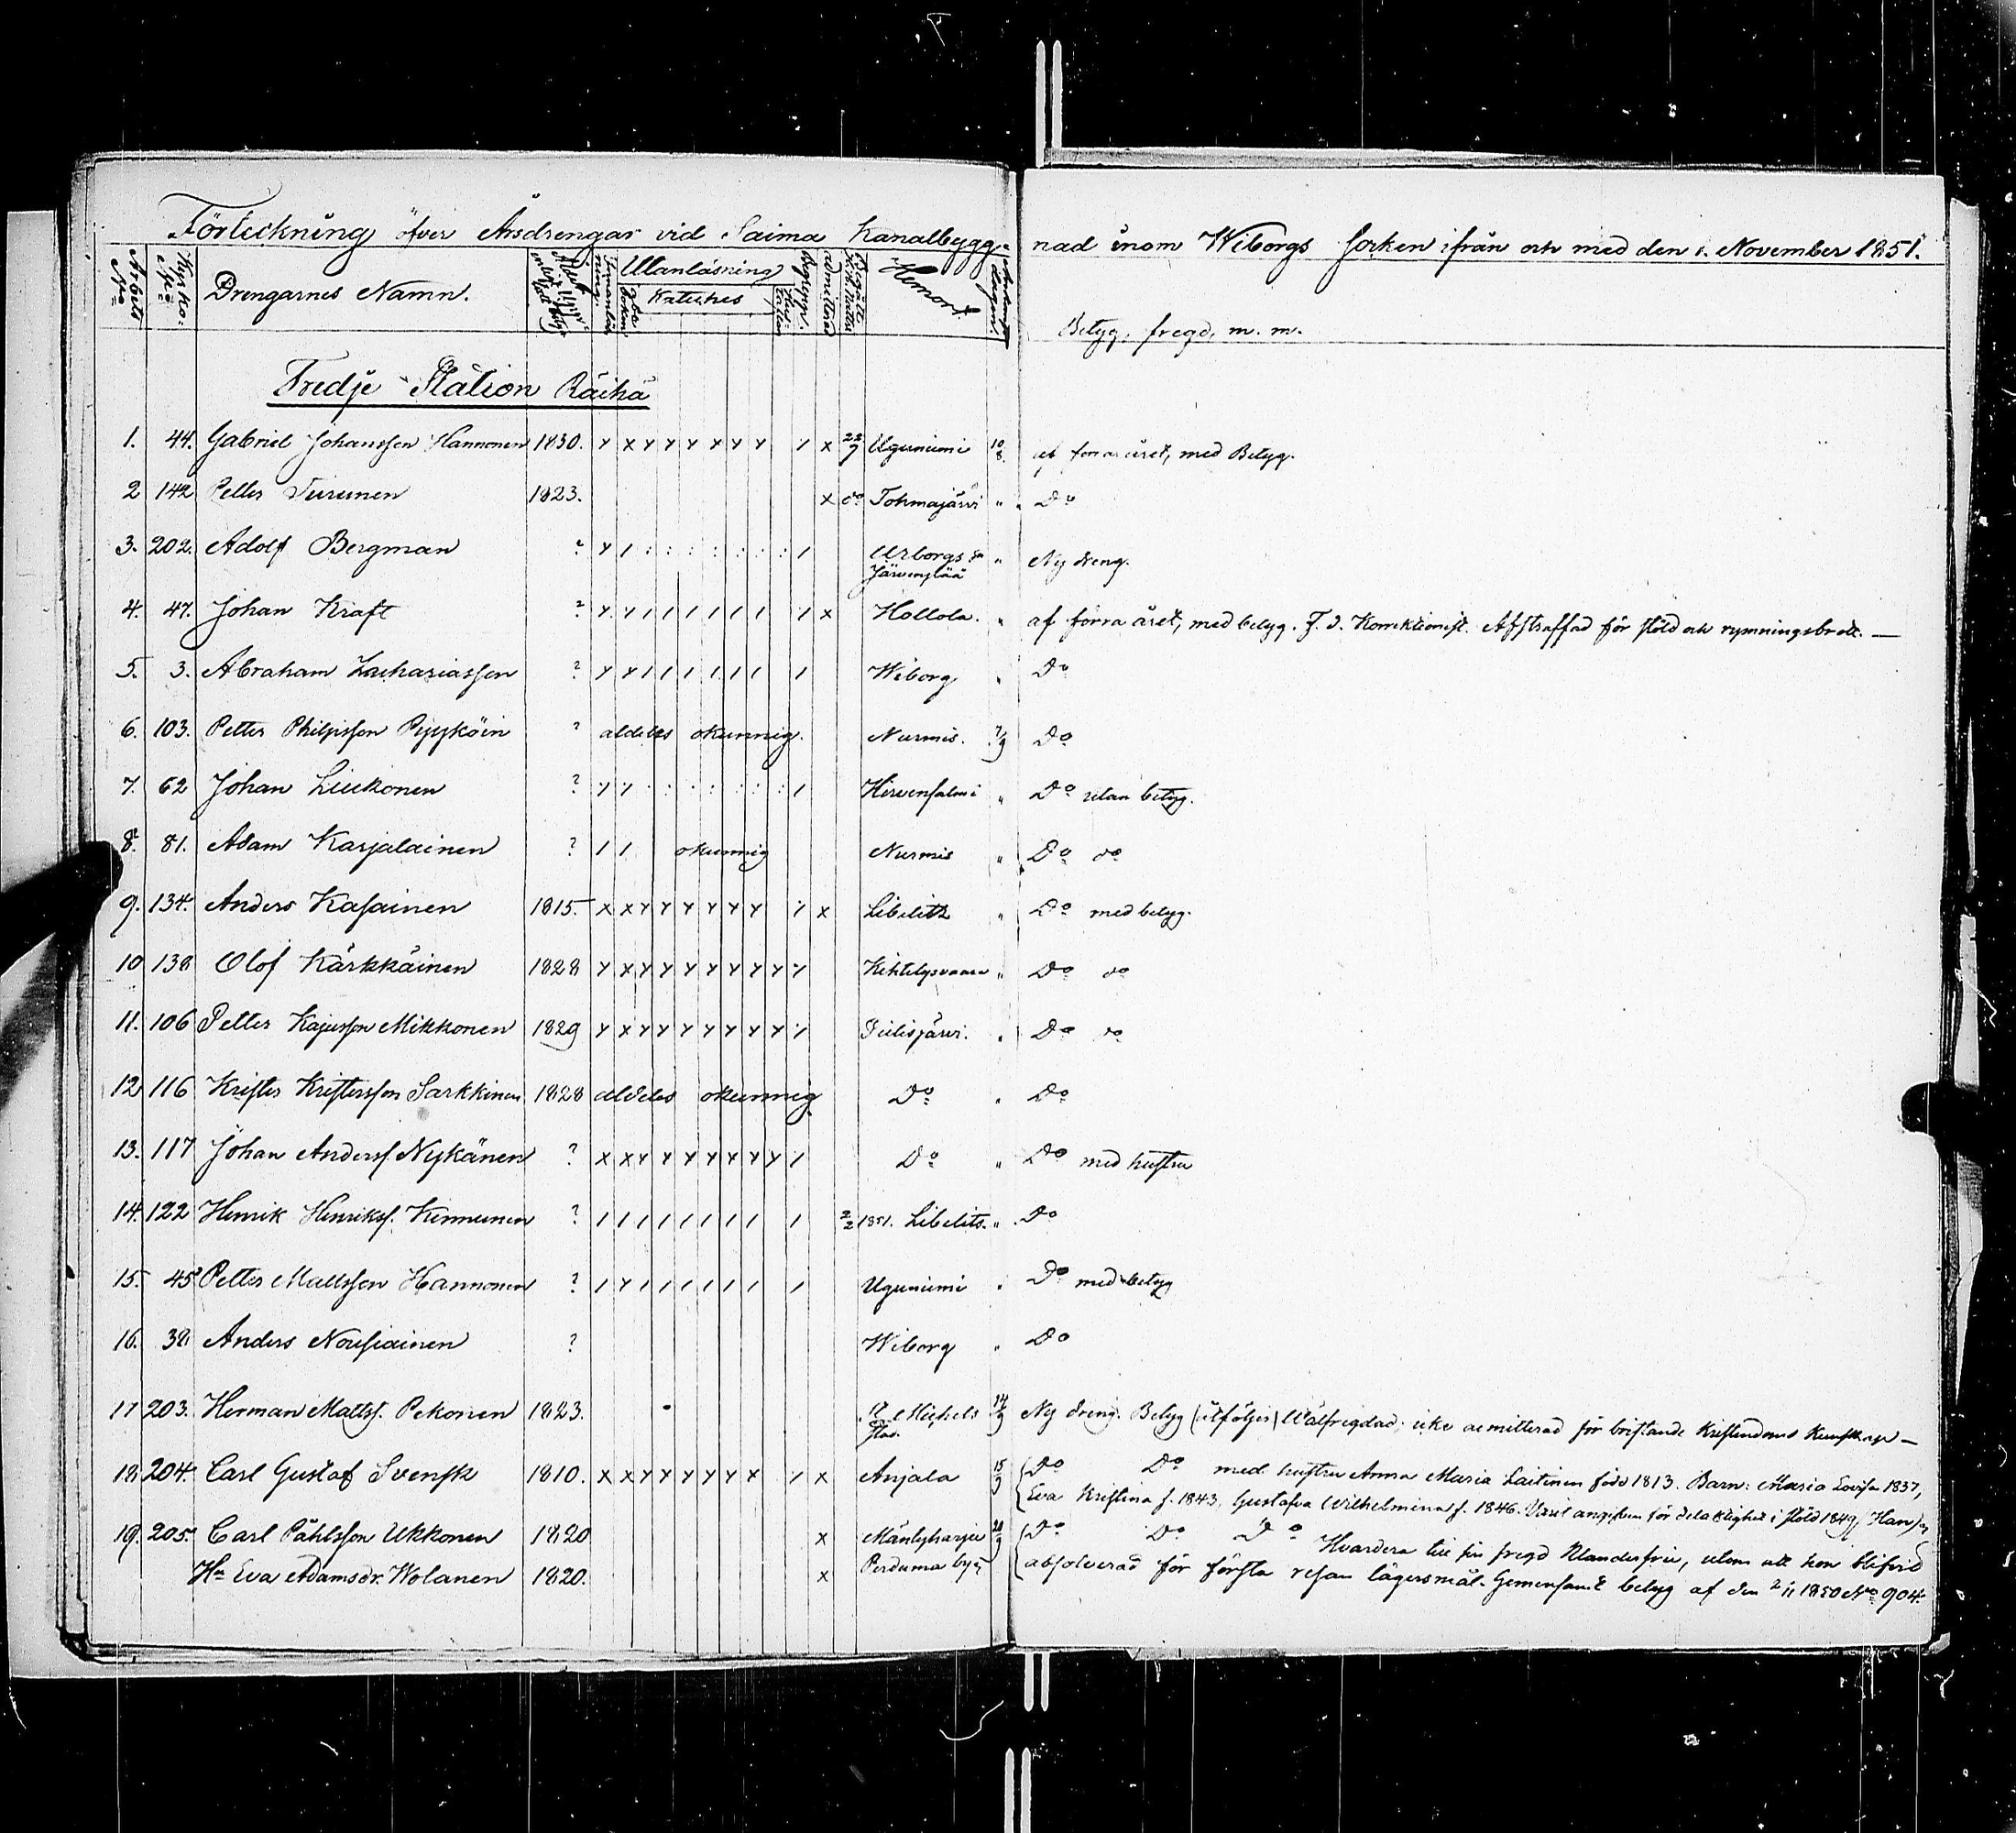 Förteckning öfver Årsdrengar vid Saima Kanalbygg-
nad inom Wiborgs Socken ifrån och med den 1. November 1851.
Arbets No
Kyrko: No
Drengarnes Namn.
Innanläs ning.
Utanläsning
Abc boken
Katekes
Hus: taflan
Begrepp.
Admitterad
Hemort
Betyg, fregd, m. m.
Tredje Station Räihä
1. 44. Gabriel Johansson Hannonen 1830. y x y y y y y y / x 22/9 Uguniemi 10/8. af förra året, med Betyg.
2 142 Petter Turunen 1823. x do Tohmajärvi " Do
3. 202. Adolf Bergman ? y / : : : : : : : / Wiborgs sn Järvenpää " Ny dreng.
4. 47. Johan Kraft ? y y / / / / / / / x Hollola. " af förra året, med betyg. F. d. Korrektionist. Afstraffad för stöld och rymningsbrott. —
5. 3. Abraham Zachariasson ? y y / / / / / / / Wiborg " Do
6. 103. Petter Philipsson Pyyköin ? aldeles okunnig. Nurmis. 7/9 Do
7. 62 Johan Liukonen ? y y : : : : : : : / Hirvensalmi " Do utan betyg.
8. 81. Adam Karjalainen ? / / okunnig Nurmis " Do do
9. 134. Anders Kasainen 1815. x x y y y y y y / x Libelits " Do med betyg.
10 138 Olof Kärkkäinen 1828 y x y y y y y y y / Kihtelysvaara " Do do
11. 106 Petter Kajusson Mikkonen 1829 y x y y y y y y y / Pielisjärvi. " Do do
12 116 Krister Kristersson Sarkkinen 1828 aldeles okunnig Do " Do
13. 117 Johan Anderss. Nykänen ? x x y y y y y y y / Do " Do med hustru
14. 122 Henrik Henrikss. Kinnunen ? / / / / / / / / / 2/2 1851. Libelits. " Do
15. 45 Petter Mattsson Hannonen ? / y / / / / / / / Uguniemi " Do med betyg
16. 38 Anders Nousiainen ? Wiborg " Do
17 203. Herman Matts. Pekonen 1823. St Michels stad. 14/9 Ny dreng. Betyg (åtföljer) Wälfregdad; icke admitterad för bristande Kristendoms Kunskap —
18 204. Carl Gustaf Svensk 1810. x x y y y y y x / x Anjala 15/9 Do Do med hustru Anna Maria Laitinen född 1813. Barn: Maria Lovisa 1837,
Eva Kristina f. 1843, Gustafva Wilhelmina f. 1846. Varit angifven för delaktighet i stöld 1849, Han
19. 205. Carl Påhlsson Ukkonen 1820 x Mäntyharju 20/9 Do Do Do Hvardera till sin fregd Klanderfrie, utom att hon blifvid
Hu Eva Adamsdr. Wolanen 1820. x Perduma by absolverad för första resan lägersmål. Gemensamt betyg af den 2/11 1850 No 904.